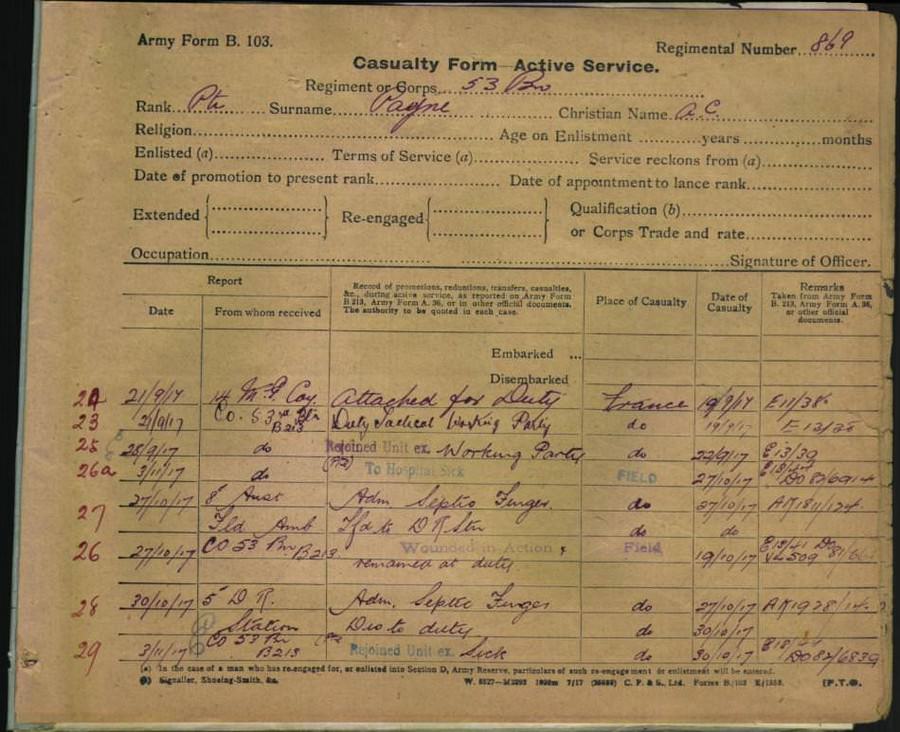 Army Form B. 103.
Regimental Number 869
Casualty Form—Active Service.
Regiment or Corps 53 Bn
Rank Pte Surname Payne Christian Name A.C.
Religion Age on Enlistment years months
Enlisted (a) Terms of Service (a) Service reckons from (a)
Date of promotion to present rank Date of appointment to lance rank
Extended Re-engaged Qualification (b)
or Corps Trade and rate
Occupation Signature of Officer.
Report
Date From whom received
Record of promotions, reductions, transfers, casualties, &c., during active service, as reported on Army Form B 213, Army Form A. 36, or in other official documents. The authority to be quoted in each case.
Place of Casualty
Date of Casualty
Remarks Taken from Army Form B. 213, Army Form A. 36, or other official documents.
Embarked ...
Disembarked
21/9/17 14 M.G. Coy. Attached for Duty France 19/9/17
23 21/9/17 Co. 53rd Bn B213 Duty Tactical Working Party do 19/9/17
25 28/9/17 do Rejoined Unit ex. Working Party do 22/9/17 E13/39
26a 3/11/17 do To Hospital Sick FIELD 27/10/17
27 27/10/17 8 Aust Adm Septic Finger do 27/10/17
Fld Amb Tfd to D R Stn do do
26 27/10/17 CO 53 Bn B213 Wounded in Action Field 19/10/17
remained at duty.
28 30/10/17 5 D R. Adm. Septic Finger do 27/10/17
Station Dis to duty do 30/10/17
29 3/11/17 CO 53 Bn B213 Rejoined Unit ex Sick do 30/10/17 DO82/6839
(a) In the case of a man who has re-engaged for, or enlisted into Section D, Army Reserve, particulars of such re-engagement or enlistment will be entered.
(b) Signaller, Shoeing-Smith, &c. 7/17 C. P. & S., Ltd. Forms B/103 [P.T.O.